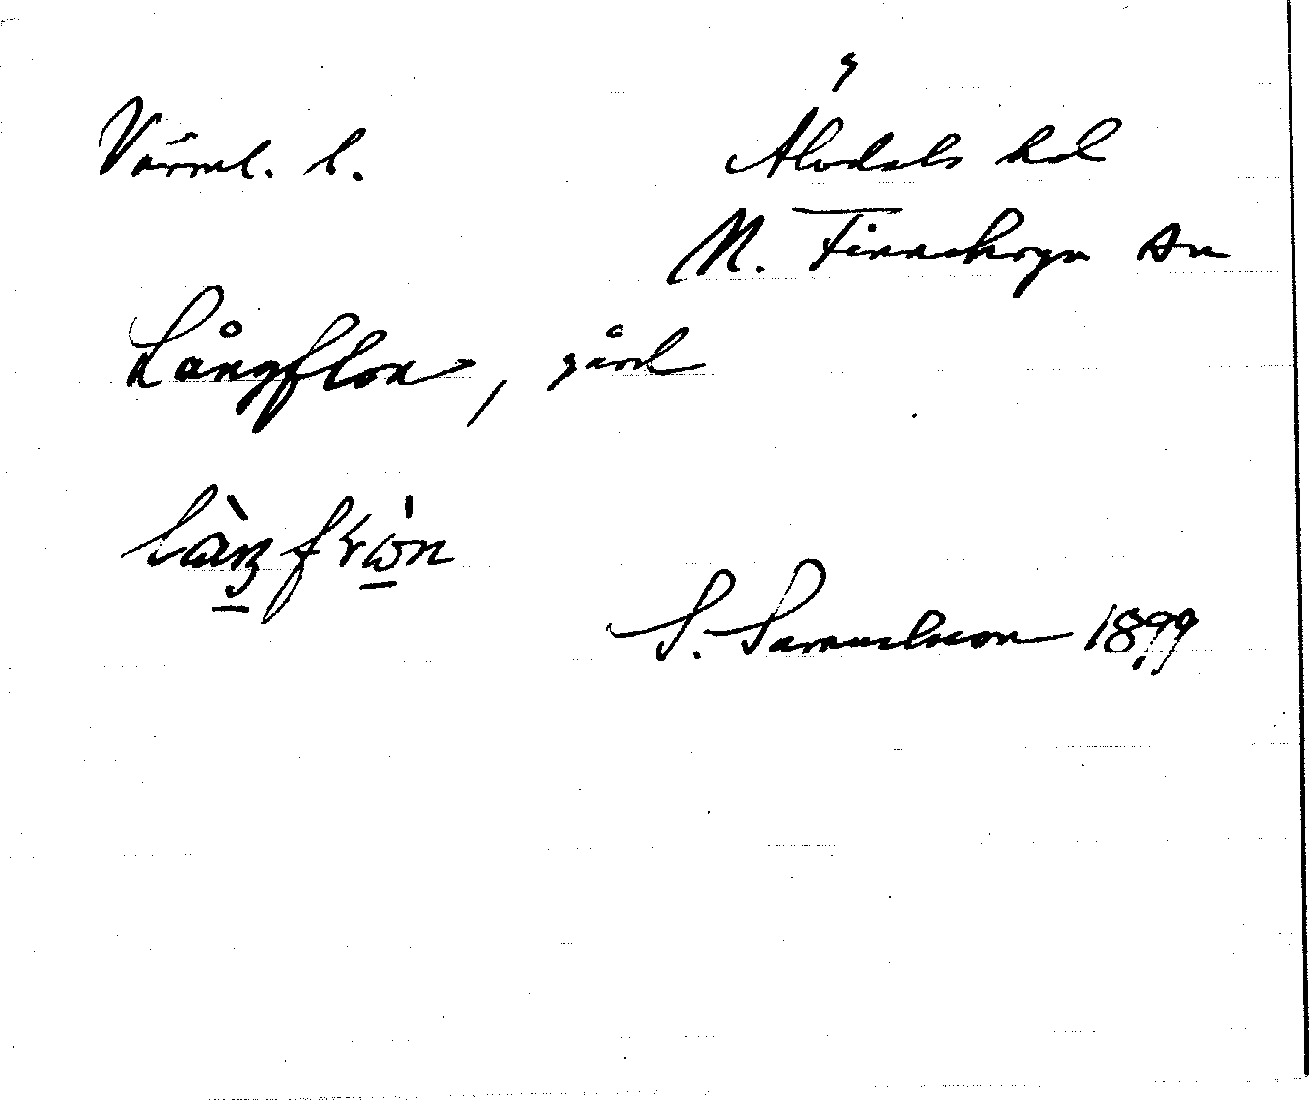 Värml. l.
Älvdals hd
N. Finnskoga sn
Långflon, gård
S. Samuelsson 1899